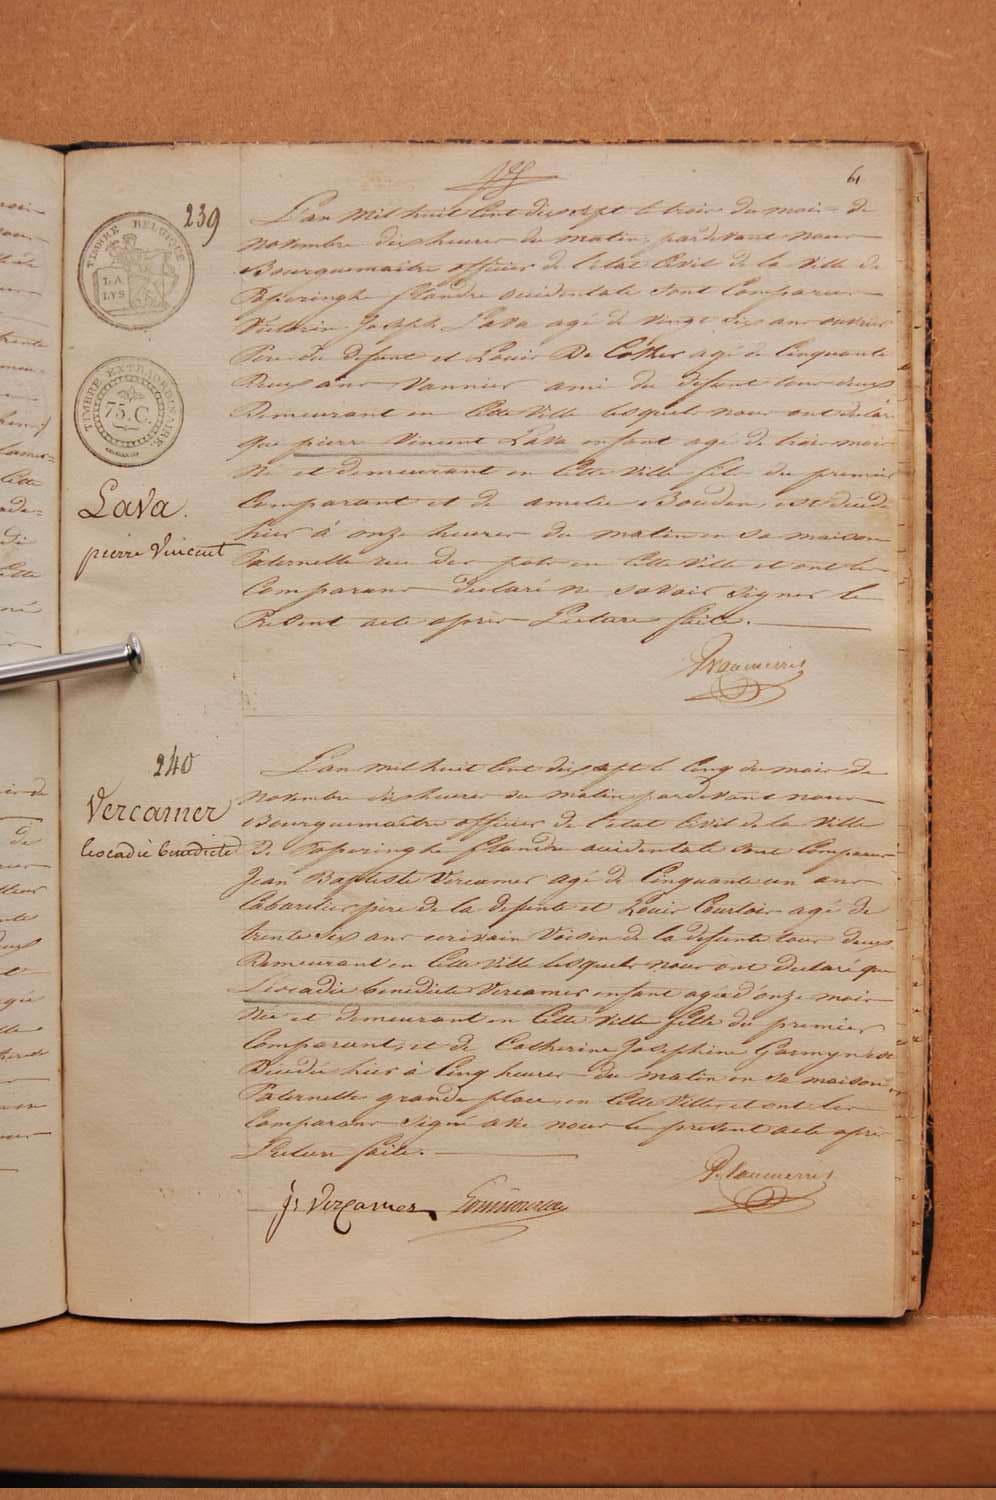 61
239
TIMBRE BELGIQUE
LA LYS
TIMBRE EXTRAORDINAIRE
75.C.
Lava.
pierre Vincent
L'an mil huit Cent dix sept le trois du mois de
novembre dix heures du matin, pardevant nous
Bourguemaitre officier de l'etat Civil de la Ville de
Poperinghe flandre occidentale sont Comparus
Victorin Joseph Lava agé de vingt six ans ouvrier
Pere du défunt et Louis De Cother agé de Cinquante
Deux ans Vannier ami du defunt tous deux
Demeurant en Cette Ville lesquels nous ont declaré
que pierre Vincent Lava enfant agé de trois mois
Né et demeurant en Cette Ville fils du premier
Comparant et de amelie Bouden, est décédé
hier à onze heures du matin en sa maison
Paternelle rue des pots en Cette Ville et ont les
Comparans declaré ne savoir signer le
Present acte après Lecture faite.
240
Vercamer
Leocadie benedicte
L'an mil huit Cent dix sept le Cinq du mois de
novembre dix heures du matin pardevant nous
Bourguemaitre officier de l'etat Civil de la Ville
De Poperinghe flandre occidentale sont Comparus
Jean Baptiste Vercamer agé de Cinquante un ans
Cabaretier pere de la defunte et Louis Courtois agé de
trente six ans ecrivain Voisin de la defunte tous deux
Demeurant en Cette Ville lesquels nous ont declaré que
Léocadie benedicte Vercamer enfant agée d'onze mois
Née et demeurant en Cette Ville fille du premier
Comparant, et de Catherine Josephine Garmyn est
Décédée hier à Cinq heures du matin en sa maison
Paternelle grande place, en Cette Ville, et ont les
Comparans signé avec nous le present acte après
Lecture faite.
js Vercamer